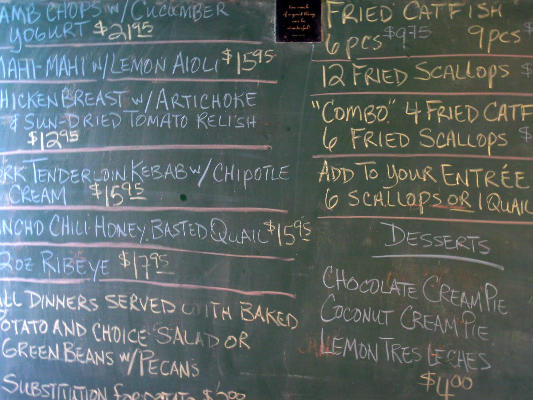 AMB CHOPS w/ CUCUMBER
YOGURT $21.95
MAHI-MAHI w/ LEMON AIOLI $15.95
HICKEN BREAST w/ ARTICHOKE
& SUN-DRIED TOMATO RELISH
$12.95
RK TENDERLOIN KEBAB w/ CHIPOTLE
CREAM $15.95
NCHO CHILI-HONEY BASTED QUAIL $15.95
2oz RIBEYE $17.95
ALL DINNERS SERVED WITH BAKED
POTATO AND CHOICE SALAD OR
GREEN BEANS w/ PECANS
SUBSTITUTION FOR POTATO $2.00
FRIED CATFISH
6 pcs $9.75 9 pcs $
12 FRIED SCALLOPS $
"COMBO" 4 FRIED CATF
6 FRIED SCALLOPS $
ADD TO YOUR ENTRÉE
6 SCALLOPS OR 1 QUAIL
DESSERTS
CHOCOLATE CREAM PIE
COCONUT CREAM PIE
LEMON TRES LECHES
$4.00